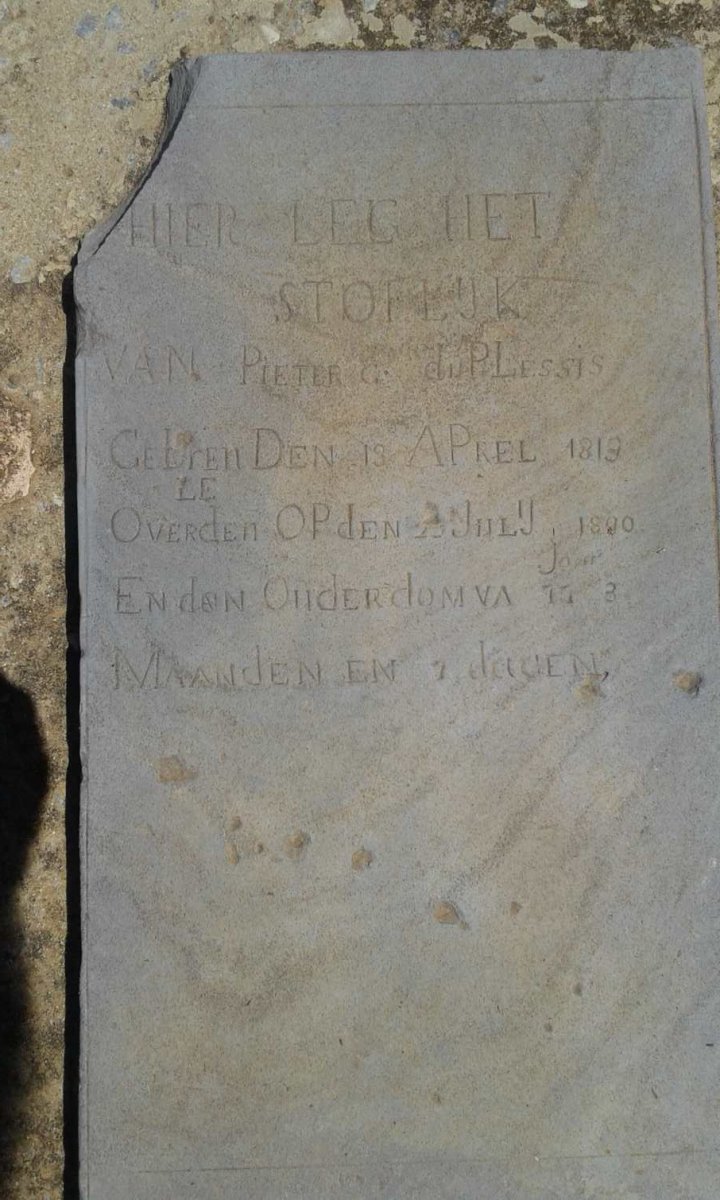 HIER LEG HET
STOFLIJK
VAN PIETER G. du PLESSIS
GebOren DEN 18 APREL 1819
LE
OVERden OP den JULIJ 1890
Jaar
EN den OUderdom VA 3
MAANDEN EN 7 dagEN,